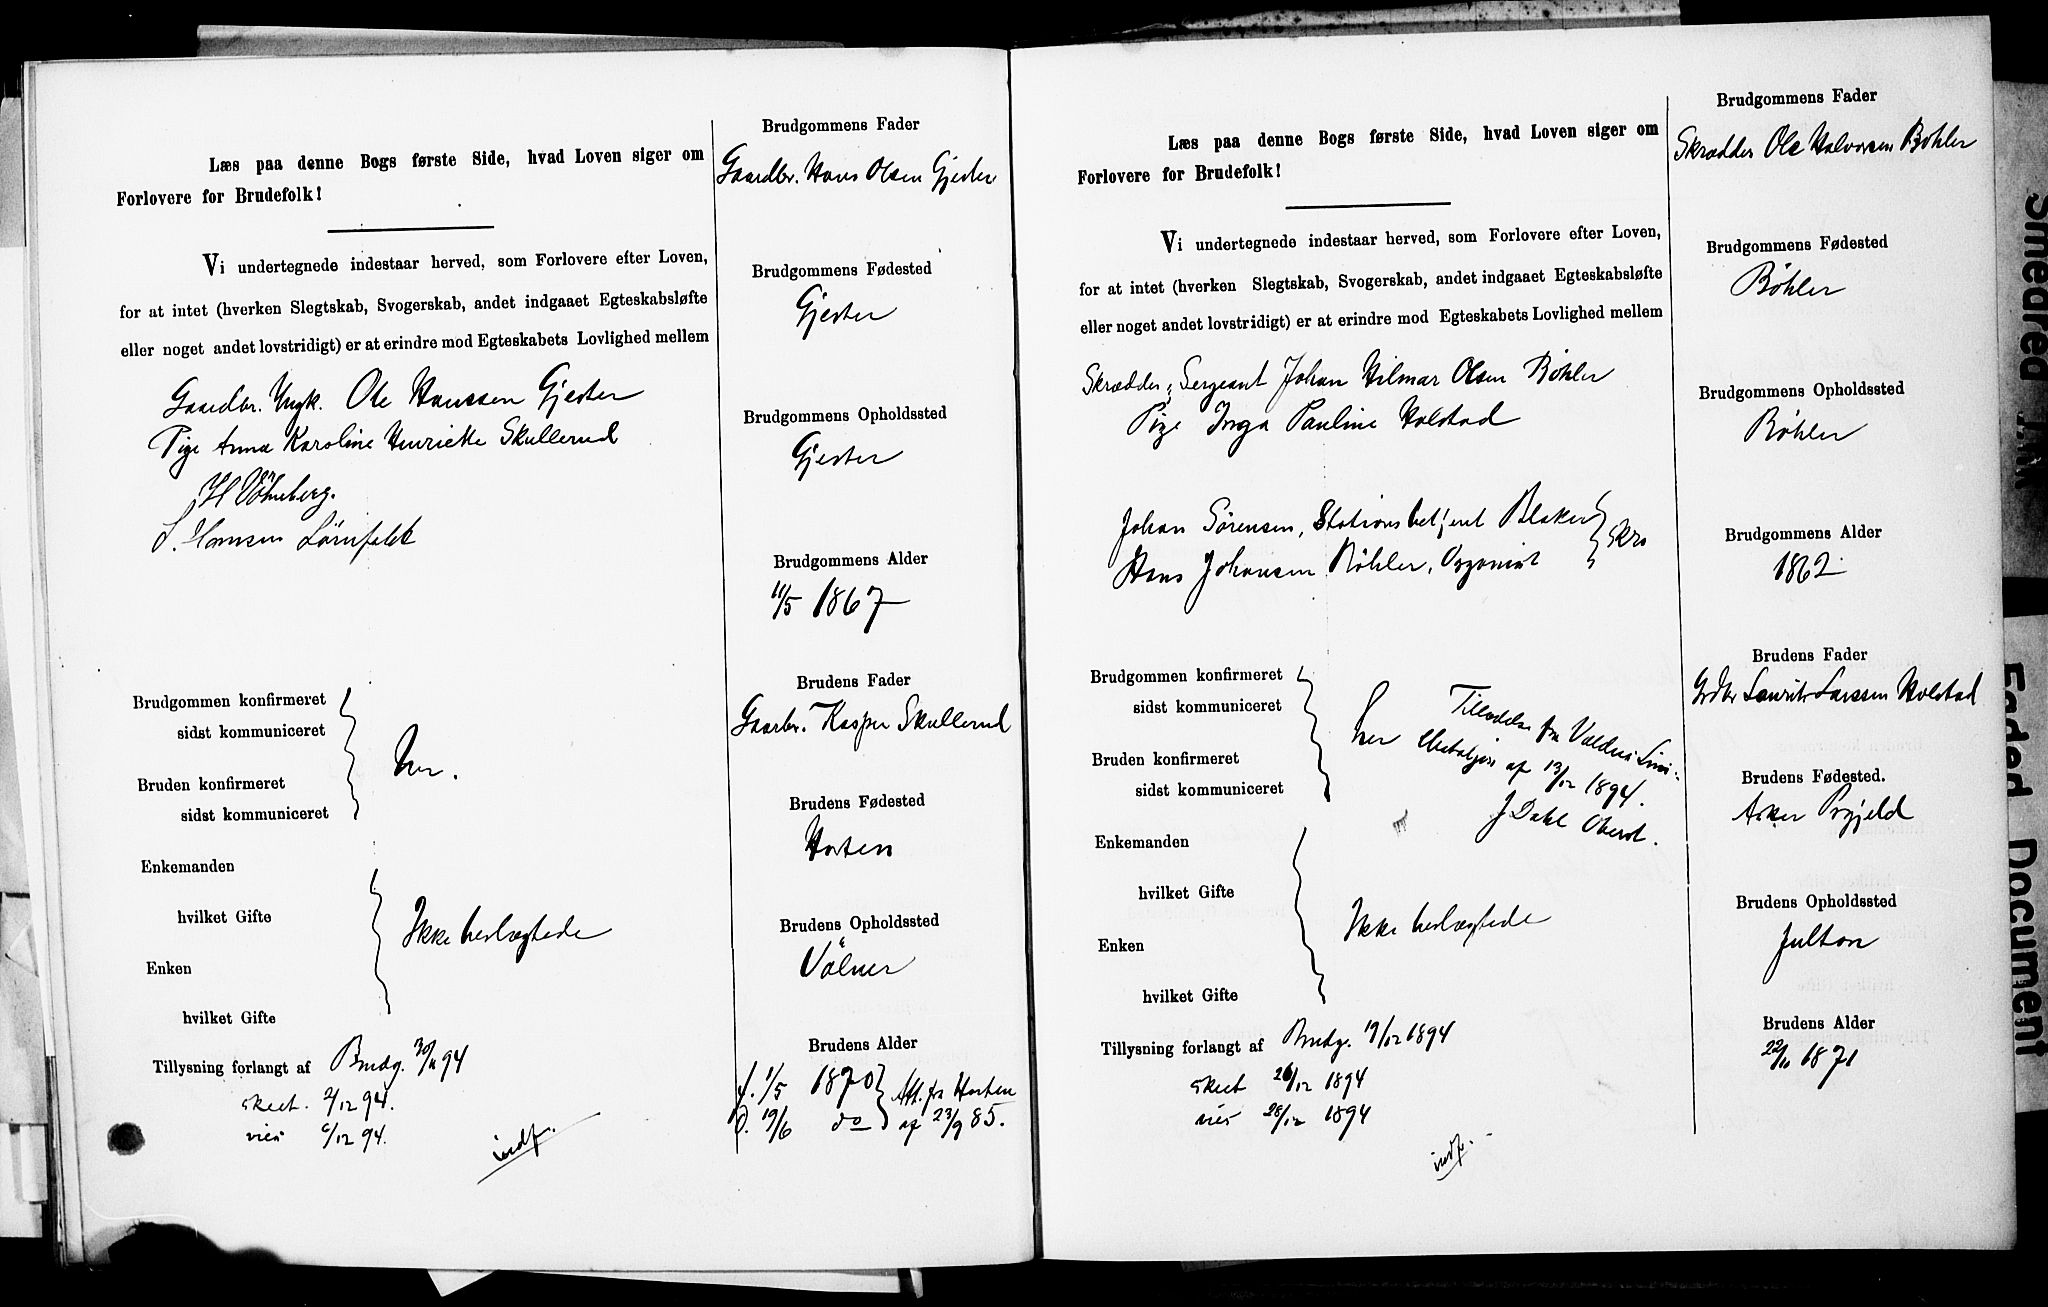 Læs paa denne Bogs første Side, hvad Loven siger om
Forlovere for Brudefolk!
Vi undertegnede indestaar herved, som Forlovere efter Loven,
for at intet (hverken Slegtskab, Svogerskab, andet indgaaet Egteskabsløfte
eller noget andet lovstridigt) er at erindre mod Egteskabets Lovlighed mellem
Gaardbr. Ungk. Ole Hanssen Gjester
Pige Anna Karoline Henriette Skullerud
S. Hansen
Brudgommen konfirmeret
sidst kommuniceret
Bruden konfirmeret
sidst kommuniceret
her.
Enkemanden
hvilket Gifte
Enken
hvilket Gifte
Ikke beslægtede
Tillysning forlangt af Brudg. 30/11 94
skeet. 2/12 94.
viet 6/12 94.
indf.
Brudgommens Fader
Gaardbr. Hans Olsen Gjester
Brudgommens Fødested
Gjester
Brudgommens Opholdssted
Gjester
Brudgommens Alder
11/5 1867
Brudens Fader
Gaarbr. Kasper Skullerud
Brudens Fødested
Horten
Brudens Opholdssted
Brudens Alder
f. 1/5 1870 Att. fra Horten
D. 19/6 do af 23/9 85.
Læs paa denne Bogs første Side, hvad Loven siger om
Forlovere for Brudefolk!
Vi undertegnede indestaar herved, som Forlovere efter Loven,
for at intet (hverken Slegtskab, Svogerskab, andet indgaaet Egteskabsløfte
eller noget andet lovstridigt) er at erindre mod Egteskabets Lovlighed mellem
Skrædder, Sergeant Johan Hilmar Olsen Bøhler
Pige Inga Pauline Holstad
Johan Sørensen, Stationsbetjent Blaker
Hans Johansen Bøhler, Organist
Brudgommen konfirmeret
sidst kommuniceret
Bruden konfirmeret
sidst kommuniceret
her
Tilladelse fra Valders Linie-
Bataljon af 13/12 1894.
J Dahl Oberst.
Enkemanden
hvilket Gifte
Enken
hvilket Gifte
Ikke beslægtede
Tillysning forlangt af Brudg. 19/12 1894
skeet 26/12 1894
viet 28/12 1894
indf.
Brudgommens Fader
Skrædder Ole Halvorsen Bøhler
Brudgommens Fødested
Bøhler
Brudgommens Opholdssted
Bøhler
Brudgommens Alder
1862
Brudens Fader
Grdbr Laurits Larssen Holstad
Brudens Fødested.
Asker Prgjeld
Brudens Opholdssted
Julton
Brudens Alder
22/11 1871
Faded Document